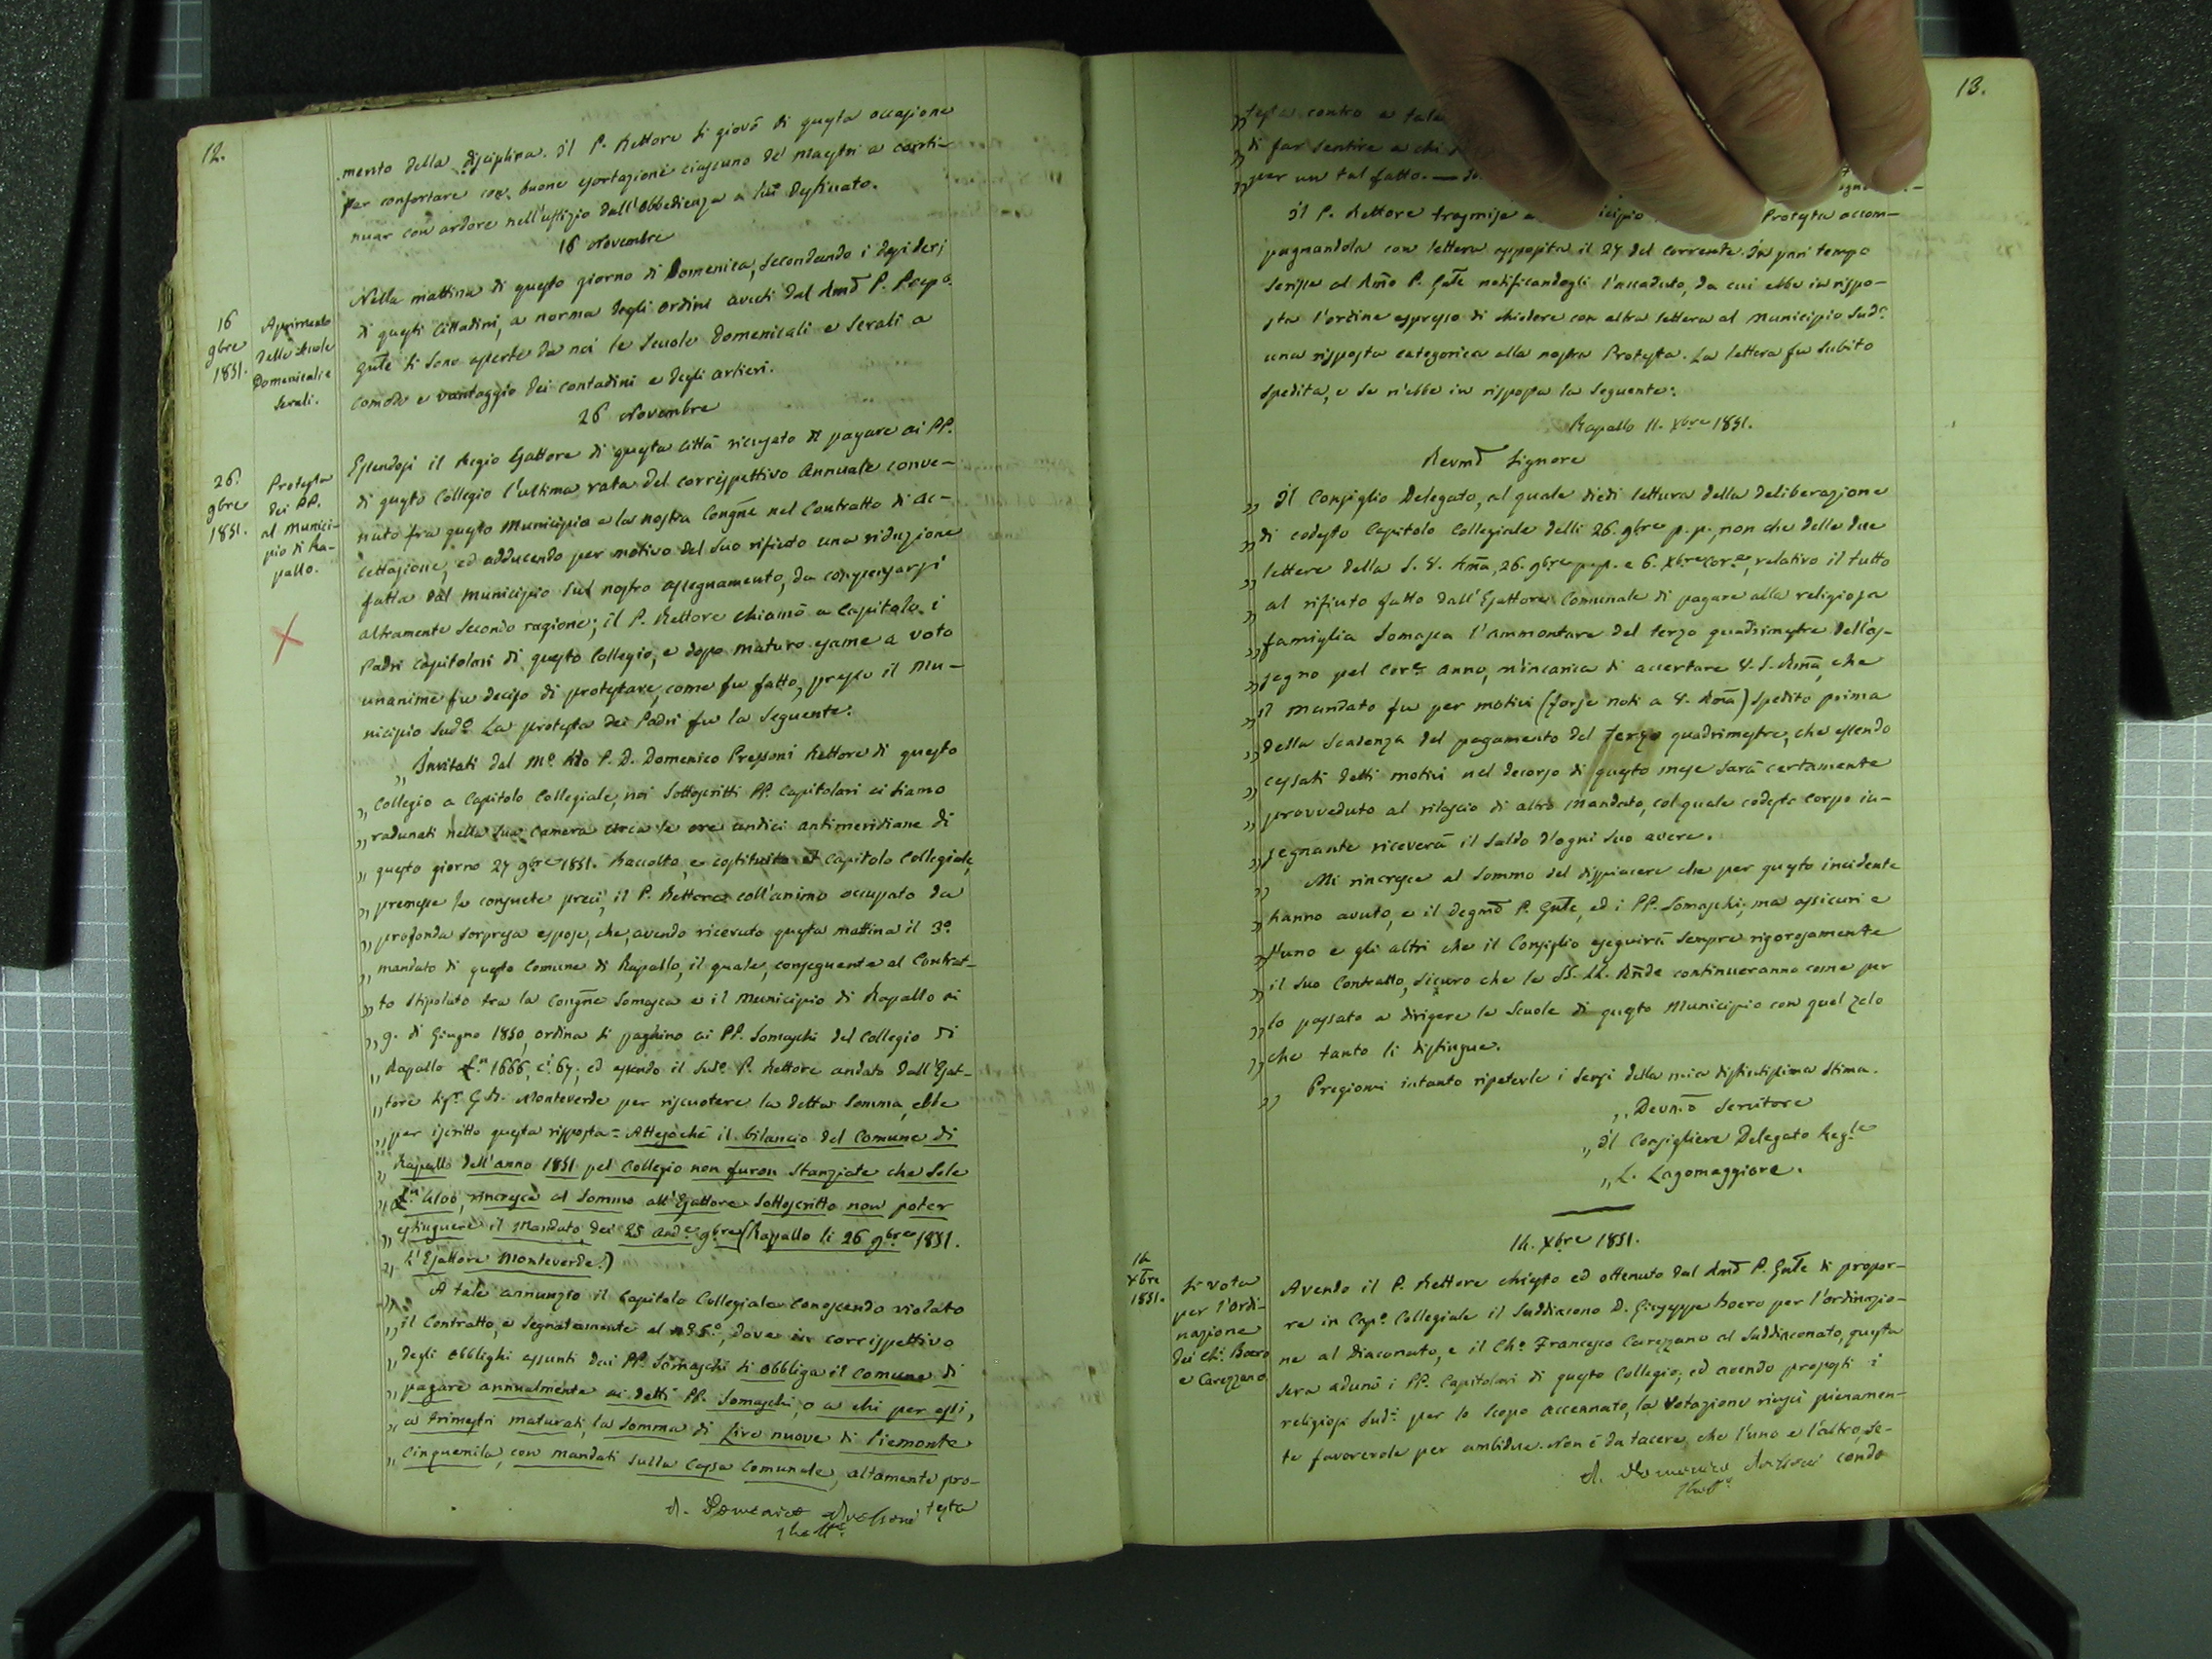 12.
mento della disciplina. Il P. Rettore si giovò di questa occasione
per confortare con buone esortazioni ciascuno de' Maestri a conti-
nuar con ardore nell'uffizio dall'obbedienza a lui destinato.
16 Novembre
16 9bre 1851.
Aprimento delle scuole Domenicali e serali.
Nella mattina di questo giorno di Domenica, secondando i desiderj
di questi Cittadini, a norma degli ordini avuti dal Rmō P. Prepō.
Gnlē si sono aperte da noi le Scuole Domenicali e Serali a
comodo e vantaggio dei contadini e degli artieri.
26 Novembre
26. 9bre 1851.
Protesta dei PP. al Munici-
pio di Ra-
pallo.
Essendosi il Regio Esattore di questa città ricusato di pagare ai PP.
di questo Collegio l'ultima rata del correspettivo annuale conve-
nuto fra questo Municipio e la nostra Congñe nel Contratto di ac-
cettazione, ed adducendo per motivo del suo rifiuto una riduzione
fatta dal Municipio sul nostro assegnamento, da compensarsi
altramente secondo ragione; il P. Rettore chiamò a Capitolo i
Padri Capitolari di questo Collegio, e dopo maturo esame a voto
unanime fu deciso di protestare, come fu fatto, presso il Mu-
nicipio sudo. La protesta dei Padri fu la seguente.
„ Invitati dal Mo. Rdo P. D. Domenico Pressoni Rettore di questo
„ Collegio a Capitolo Collegiale, noi sottoscritti PP. Capitolari ci siamo
„ radunati nella sua camera circa le ore undici antimeridiane di
„ questo giorno 27 9bre 1851. Raccolto, e costituito il Capitolo Collegiale,
„ premesse le consuete preci, il P. Rettore coll'animo occupato da
„ profonda sorpresa espose, che, avendo ricevuto questa mattina il 3o.
„ mandato di questo Comune di Rapallo, il quale, conseguente al Contrat-
„ to stipolato tra la Congñe Somasca e il Municipio di Rapallo ai
„ 9. di Giugno 1850, ordina si paghino ai PP. Somaschi del Collegio di
„ Rapallo Ln. 1666, ci. 67; ed essendo il sudo. P. Rettore andato dall'Esat-
„ tore Sigr. G.B. Monteverde per riscuotere la detta somma, ebbe
„ per iscritto questa risposta = Attesochè il bilancio del Comune di
„ Rapallo dell'anno 1851 pel Collegio non furon stanziate che sole
„ Ln. 4100, rincresce al sommo all'Esattore sottoscritto non poter
„ estinguere il Mandato dei 25 ande. 9bre (Rapallo li 26 9bre 1851.
„ L'Esattore Monteverde.)
„ A tale annunzio il Capitolo Collegiale conoscendo violato
„ il Contratto, e segnatamente al no. 5.o, dove in correspettivo
„ degli obblighi assunti dai PP. Somaschi si obbliga il Comune di
„ pagare annualmente ai detti PP. Somaschi, o a chi per essi,
„ a trimestri maturati, la somma di Lire nuove di Piemonte
„ cinquemila, con mandati sulla Cassa Comunale, altamente pro-
testa
D. Domenico Pressoni
Rettē
13.
„ testa contro a tale
„ di far sentire a chi
„ per un tal fatto. —
Il P. Rettore trasmise Protesta accom-
pagnandola con lettera apposita il 27 del corrente. In pari tempo
scrisse al Rmō P. Gnlē notificandogli l'accaduto, da cui ebbe in rispo-
sta l'ordine espresso di chiedere con altra lettera al Municipio sudo.
una risposta categorica alla nostra Protesta. La lettera fu subito
spedita, e se n'ebbe in risposta la seguente:
Rapallo 11. Xbre 1851.
Revmō Signore
„ Il Consiglio Delegato, al quale diedi lettura della deliberazione
„ di codesto Capitolo Collegiale delli 26. 9bre p. p., non che delle due
„ lettere della S. V. Rmā, 26. 9bre p.p. e 6. Xbre core, relativo il tutto
„ al rifiuto fatto dall'Esattore Comunale di pagare alla religiosa
„ famiglia Somasca l'ammontare del terzo quadrimestre dell'as-
„ segno pel core. anno, m'incarica di accertare V. S. Rmā, che
„ il mandato fu per motivi (forse noti a V. Rmā) spedito prima
„ della scadenza del pagamento del terzo quadrimestre, che essendo
„ cessati detti motivi nel decorso di questo mese sarà certamente
„ provveduto al rilascio di altro mandato, col quale codesto corpo in-
„ segnante riceverà il saldo d'ogni suo avere.
„ Mi rincresce al sommo del dispiacere che per questo incidente
„ hanno avuto, e il degmō P. Gnlē, ed i PP. Somaschi; ma assicuri e
„ l'uno e gli altri che il Consiglio eseguirà sempre rigorosamente
„ il suo Contratto, sicuro che le SS. LL. Rñde continueranno come per
„ lo passato a dirigere le Scuole di questo Municipio con quel zelo
„ che tanto li distingue.
„ Pregiomi intanto ripeterle i sensi della mia distintissima stima.
„ Devmō Servitore
„ Il Consigliere Delegato Regle
„ L. Lagomaggiore.
14. Xbre 1851.
14 Xbre 1851.
Si vota per l'ordi-
nazione dei chi. Boero e Carozzano
Avendo il P. Rettore chiesto ed ottenuto dal Rmō P. Gnlē di propor-
re in Capo. Collegiale il suddiacono D. Giuseppe Boero per l'ordinazio-
ne al Diaconato, e il Cho. Francesco Carozzano al Suddiaconato, questa
sera adunò i PP. Capitolari di questo Collegio; ed avendo proposti i
religiosi sudi. per lo scopo accennato, la votazione riuscì pienamen-
te favorevole per ambidue. Non è da tacere, che l'uno e l'altro, se-
condo
D. Domenico Pressoni
Rettē